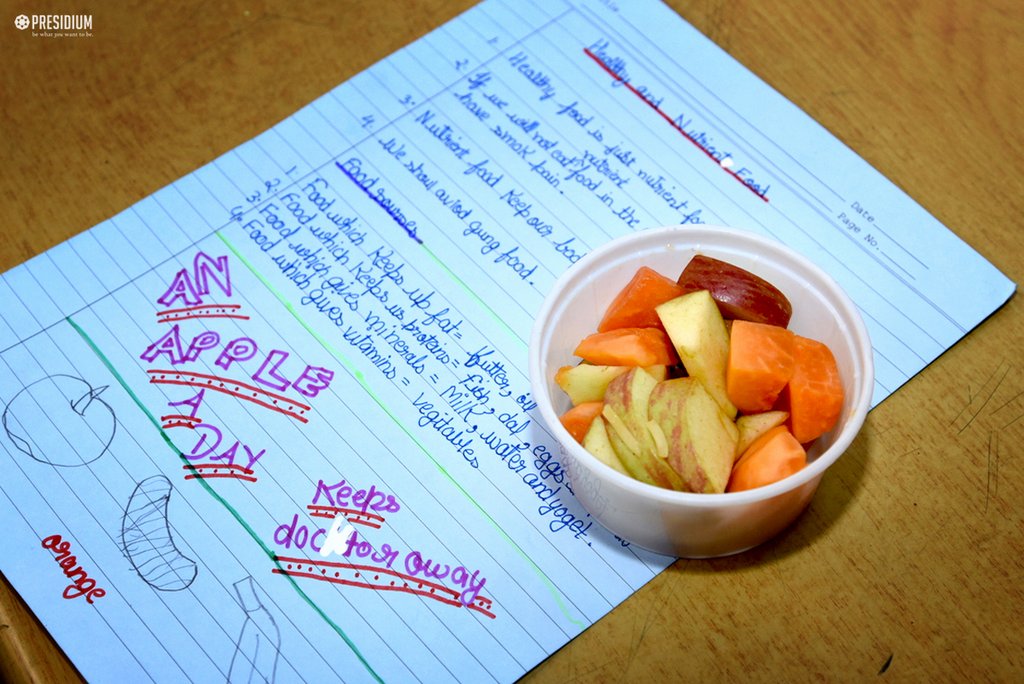 PRESIDIUM
be what you want to be.
Date
Page No.
Healthy and Nutrient Food
1. Healthy food is just nutrient for
2. If we will not eat nutrient food in the
have smak pain.
3. Nutrient food Keep our
4. We shoul aviod gung food.
Food sources
1. Food which Keeps up fat = Butter, oil
2. Food which Keeps us protiens = fish, dal, eggs
3. Food which gives minerals = Milk, water and yoget.
4. Food which gives vitamins = vegetables
AN
APPLE
A
DAY
Keeps
doctor away
orange